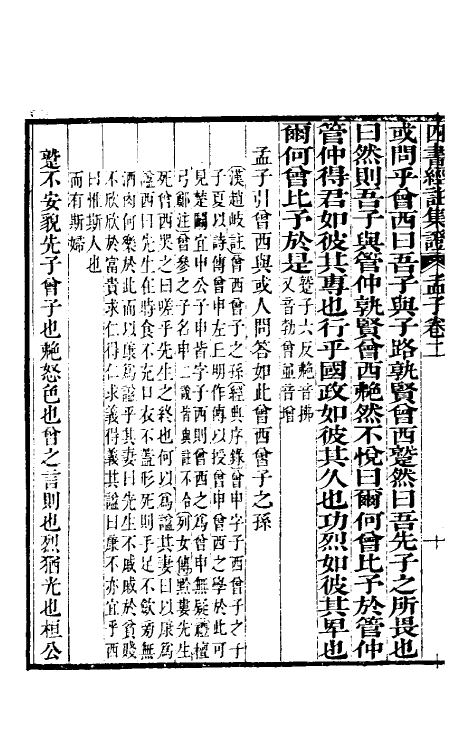 四書經註集證 孟子卷二 十
或問乎曾西曰吾子與子路孰賢曾西蹵然曰吾先子之所畏也
曰然則吾子與管仲孰賢曾西艴然不悅曰爾何曾比予於管仲
管仲得君如彼其專也行乎國政如彼其久也功烈如彼其卑也
爾何曾比予於是
蹵子六反艴音拂
又音勃曾並音增
孟子引曾西與或人問答如此曾西曾子之孫
漢趙岐註曾西曾子之孫經典序錄曾申字子西曾子之子
子夏以詩傳曾申左丘明作傳以授曾申曾西之學於此可
見楚鬬宜申公子申皆字子西則曾西之爲曾申無疑禮檀
弓鄭注曾參之子名申二說皆與註不合列女傳黔婁先生
死曾西哭之曰嗟乎先生之終也何以爲謚其妻曰以康爲
謚西曰先生在時食不充口衣不蓋形死則手足不歛旁無
酒肉何樂於此而以康爲謚乎其妻曰先生不戚戚於貧賤
不欣欣於富貴求仁得仁求義得義其謚曰康不亦宜乎西
曰惟斯人也
而有斯婦
蹵不安貌先子曾子也艴怒色也曾之言則也烈猶光也桓公